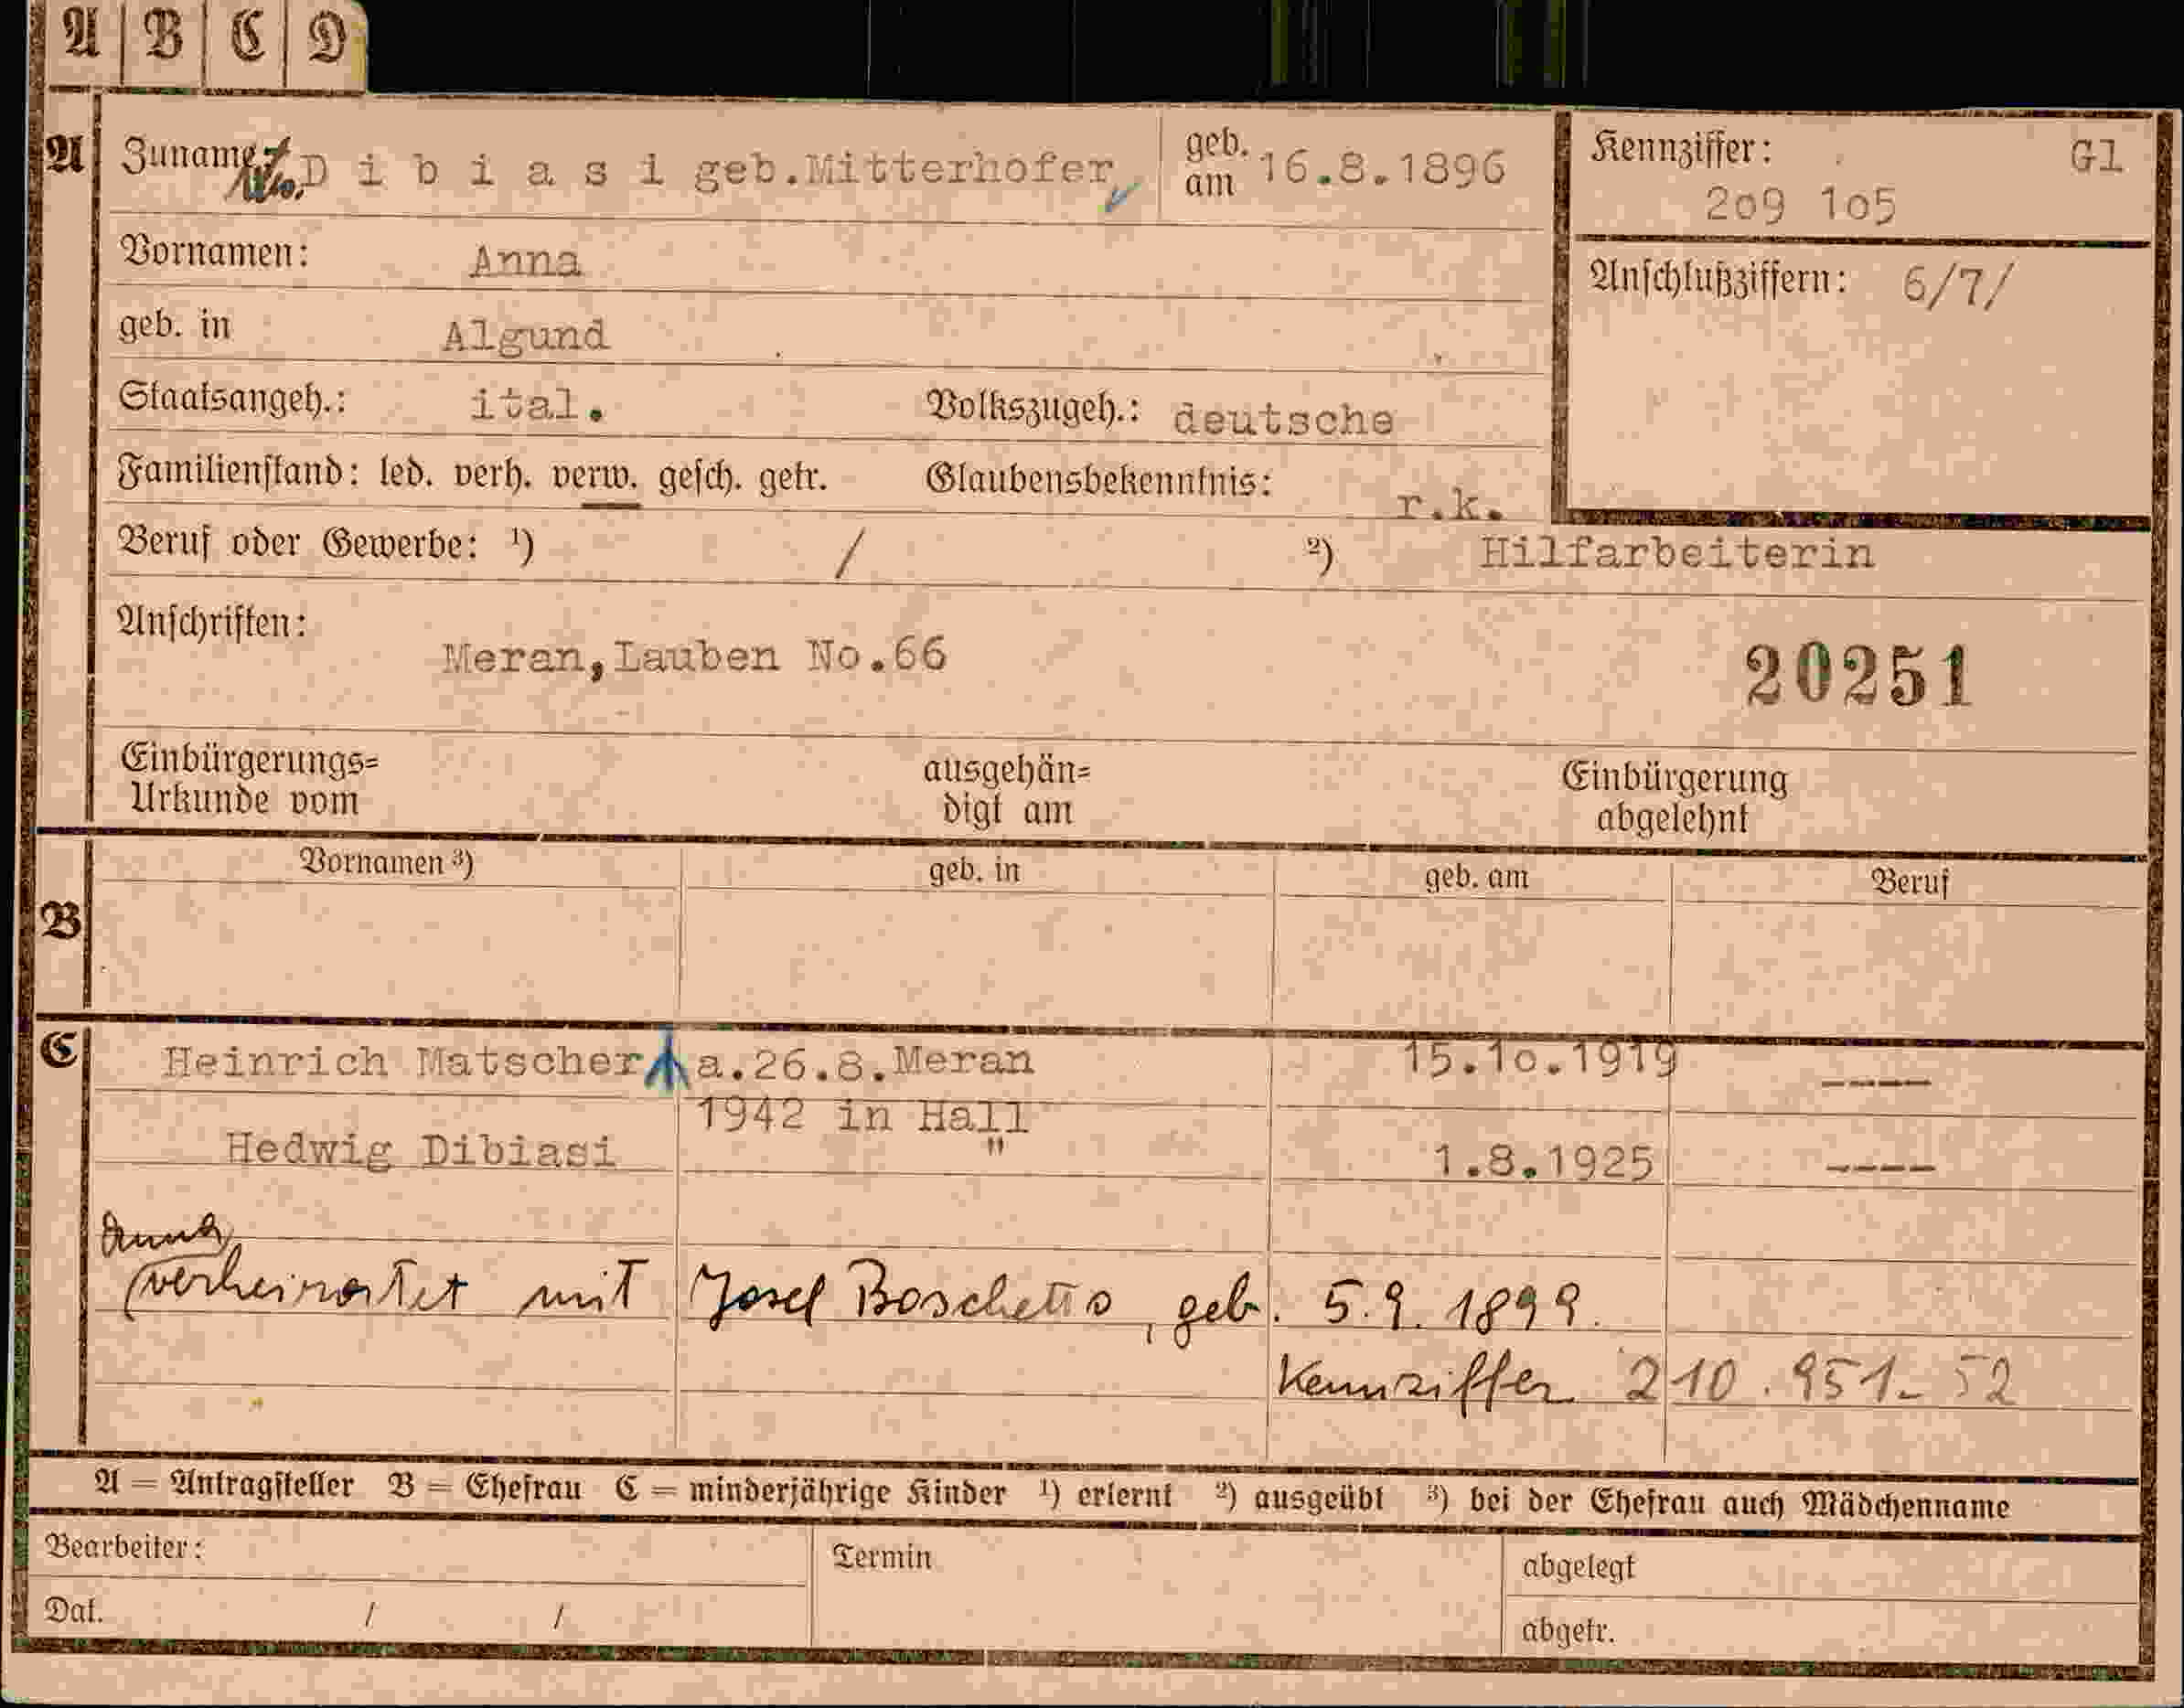 A B C D
A Zuname: Dibiasi geb.Mitterhofer geb. am 16.8.1896 Kennziffer: Gl
2o9 1o5
Vornamen: Anna
Anschlußziffern: 6/7/
geb. in Algund
Staatsangeh.: ital. Volkszugeh.: deutsche
Familienstand: led. verh. verw. gesch. getr. Glaubensbekenntnis: r.k.
Beruf oder Gewerbe: ¹) / ²) Hilfarbeiterin
Anschriften:
Meran,Lauben No.66 20251
Einbürgerungs= ausgehän= Einbürgerung
Urkunde vom digt am abgelehnt
B Vornamen ³) geb. in geb. am Beruf
C Heinrich Matscher a.26.8.Meran 15.1o.1919 -----
1942 in Hall
Hedwig Dibiasi " 1.8.1925 -----
Anna
verheiratet mit Josef Boschetto, geb. 5.9.1899.
Kennziffer 210.951-52
A = Antragsteller B = Ehefrau C = minderjährige Kinder ¹) erlernt ²) ausgeübt ³) bei der Ehefrau auch Mädchenname
Bearbeiter: Termin abgelegt
Dat. / / abgetr.